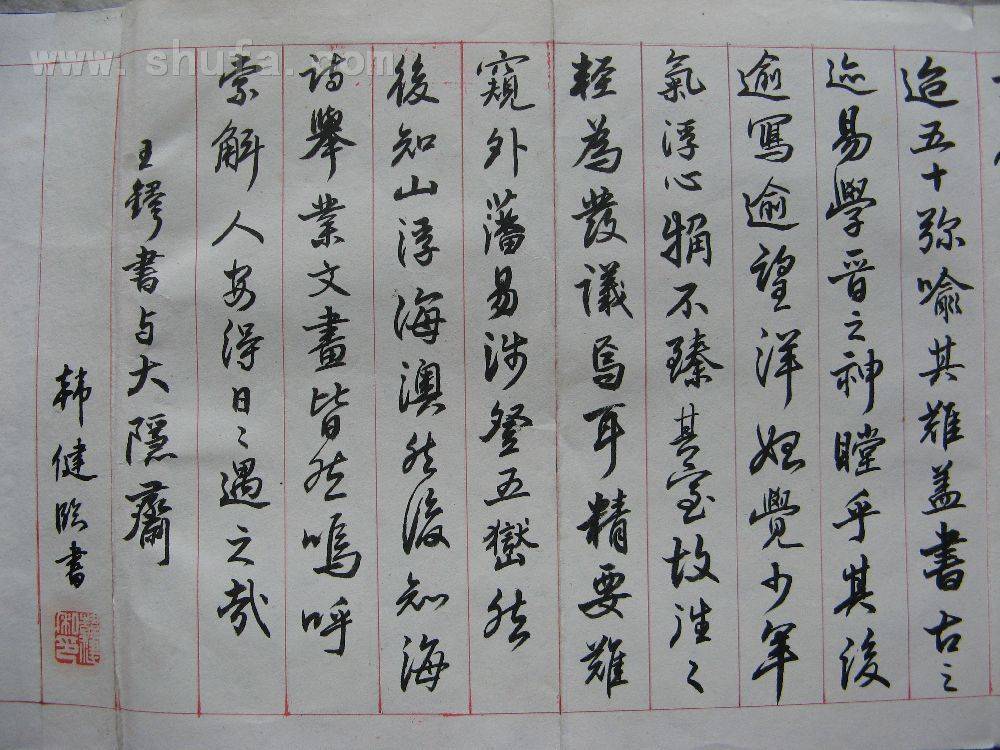 迨五十弥喻其難盖書古之
迹易學晋之神瞠乎其後
逾寫逾望洋始覺少年
氣浮心粗不臻其室故往々
輕為發議焉耳精要難
窺外藩易涉登五嶽然
後知山浮海澳然後知海
詩舉業文畫皆然嗚呼
索解人安得日〻遇之哉
王鐸書与大隱齋
韩健臨書
www.shufa.com